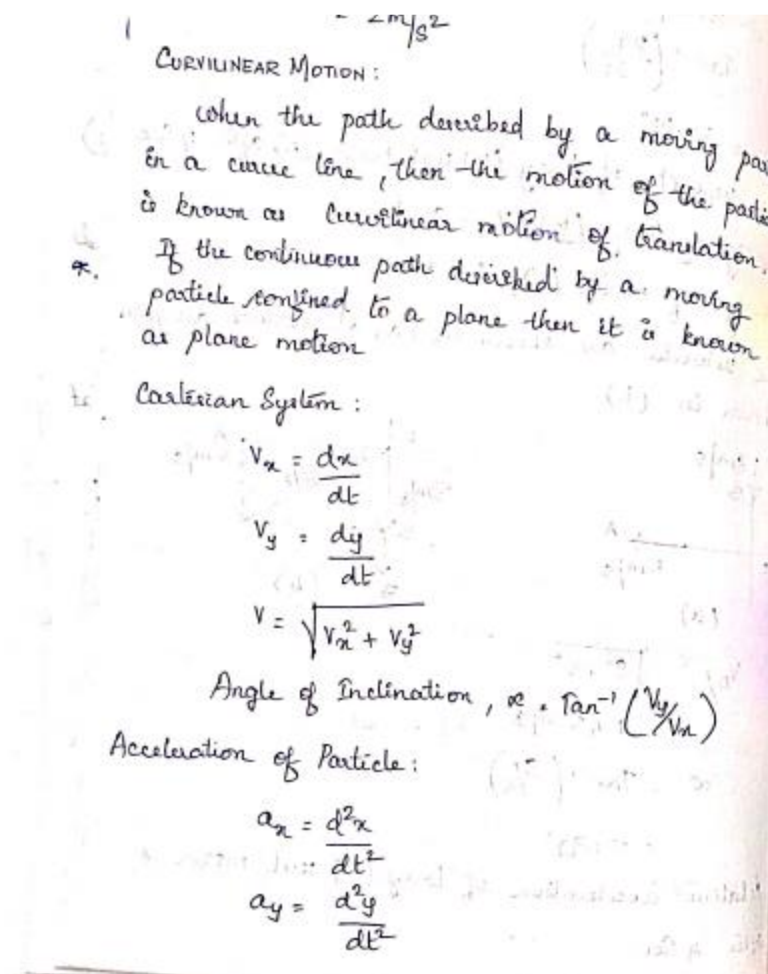 = 2m/s²
CURVILINEAR MOTION:
when the path described by a moving
in a curve line, then the motion of the
is known as curvilinear motion of translation.
*. If the continuous path described by a moving
particle confined to a plane then it is known
as plane motion
Cartesian System:
Vx = dx/dt
Vy = dy/dt
V = √(Vx² + Vy²)
Angle of Inclination, α = Tan⁻¹ (Vy/Vx)
Acceleration of Particle:
ax = d²x/dt²
ay = d²y/dt²